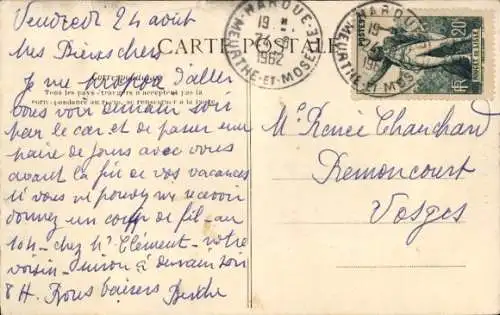 Vendredi 24 août
CARTE POSTALE
Mes Bien chers
Correspondance
Je me propose d'aller
Tous les pays étrangers n'acceptent pas la
correspondance au recto, se renseigner à la Poste
vous voir demain soir
par le car et de passer une
paire de jours avec vous
avant la fin de vos vacances
si vous ne pouvez me recevoir
donnez un coup de fil - au
104 - chez Mr Clément - votre
voisin - sinon à demain soir
8 H. Bons baisers Berthe
HAROUE
MEURTHE-ET-MOSELLE
19 H
1962
HAROUE
MEURTHE-ET-MOSELLE
19
POSTES
20c
Me Renée Chanchard
Remoncourt
Vosges